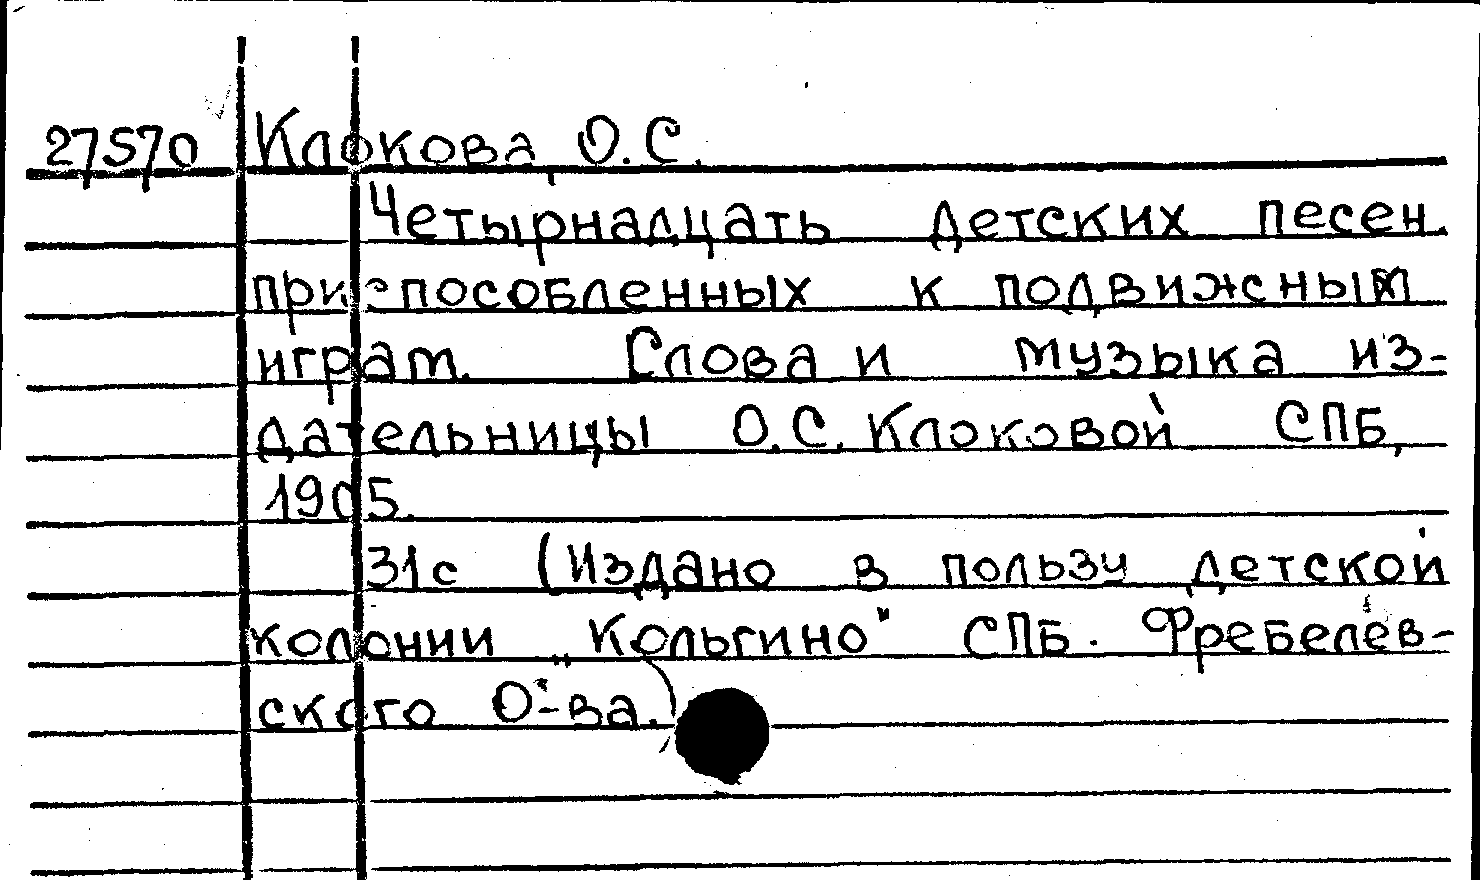 27570 Клокова, О.С.
Четырнадцать детских песен,
приспособленных к подвижным
играм. Слова и музыка из-
дательницы О.С. Клоковой СПБ,
1905.
31с (Издано в пользу детской
колонии „Кольгино" СПБ. Фребелев-
ского О-ва.)